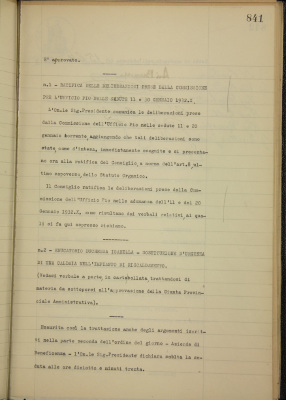 841
E' approvato.
n.1 - RATIFICA DELLE DELIBERAZIONI PRESE DALLA COMMISSIONE
PER L'UFFICIO PIO NELLE SEDUTE 11 e 20 GENNAIO 1932.X.
L'On.le Sig.Presidente comunica le deliberazioni prese
dalla Commissione dell'Ufficio Pio nelle sedute 11 e 20
gennaio corrente, aggiungendo che tali deliberazioni sono
state come d'intesa, immediatamente eseguite e si presenta-
no ora alla ratifica del Consiglio, a norma dell'art.6 ul-
timo capoverso, dello Statuto Organico.
Il Consiglio ratifica le deliberazioni prese dalla Com-
missione dell'Ufficio Pio nelle adunanze dell'11 e del 20
Gennaio 1932.X, come risultano dai verbali relativi ai qua-
li si fa qui espresso richiamo.
n.2 -
DI
(Vedasi verbale a parte in carta bollata, trattandosi di
materia da sottoporsi all'approvazione della Giunta Provin-
ciale Amministrativa).
Esaurita così la trattazione anche degli argomenti iscrit-
ti nella parte seconda dell'ordine del giorno - Azienda di
Beneficenza - l'On.le Sig.Presidente dichiara sciolta la se-
duta alle ore diciotto e minuti trenta.